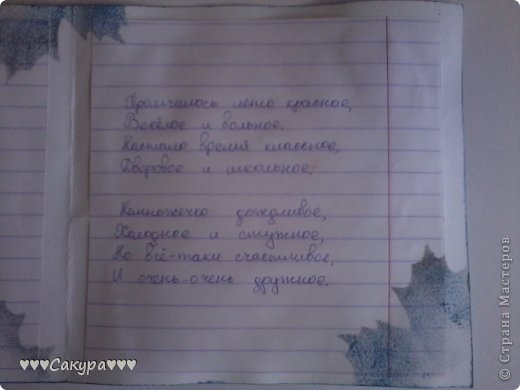 Промчалось лето красное,
Весёлое и вольное.
Настало время классное,
Дворовое и школьное.
Немножечко дождливое,
Холодное и стужное,
Но всё-таки счастливое,
И очень-очень дружное.
♥♥♥Сакура♥♥♥
© Страна Мастеров